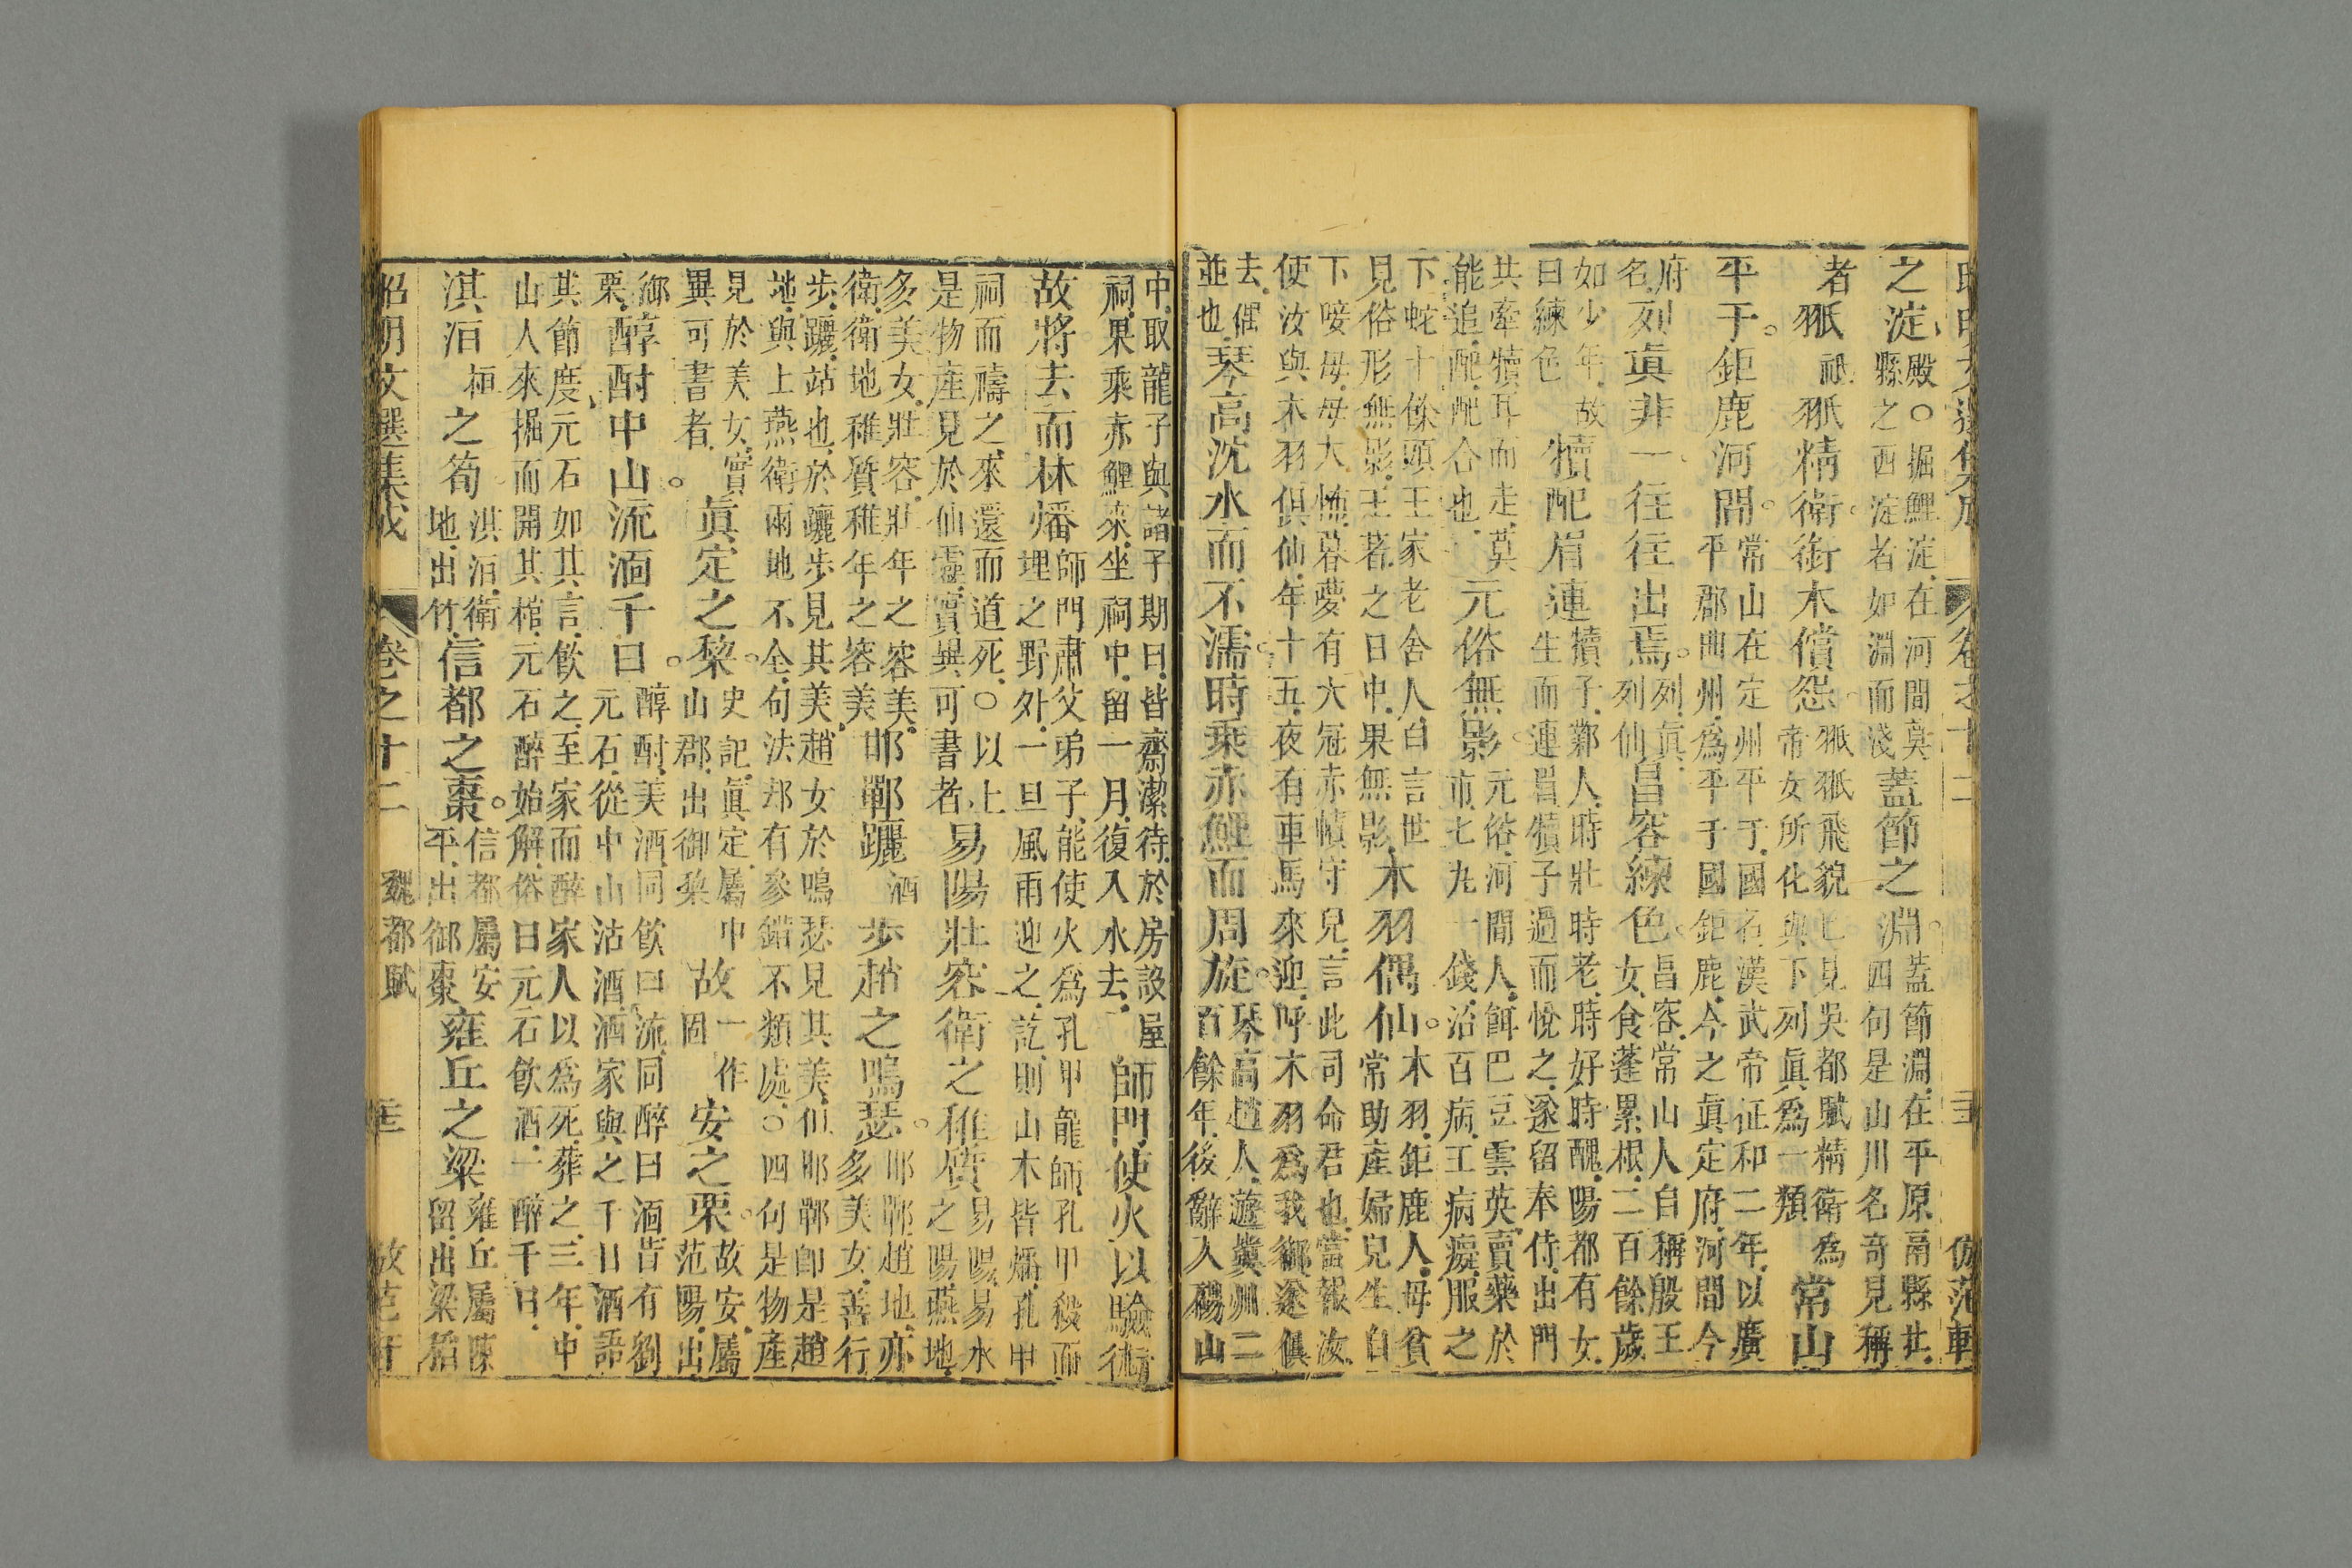 昭明文選集成 卷之十二 倣范軒
之淀殿○掘鯉淀在河間莫縣之西淀者如淵而淺蓋節之淵。蓋節淵在平原鬲縣共四句是山川名奇見稱
者精衛。銜木償怨。飛貌已見吳都賦精衛爲帝女所化與下列眞爲一類常山
平干。鉅鹿河間。常山在定州平干國名漢武帝征和二年以廣平郡曲州爲平干國鉅鹿今之眞定府河間今
府名列眞非一往往出焉。列眞列仙昌容練色。昌容常山人自稱殷王女食蓬累根二百餘歲
如少年故曰練色犢配眉連犢子鄴人時壯時老時好時醜陽都有女生而連眉犢子過而悅之遂留奉侍出門
共牽犢耳而走莫能追配配合也元俗無影。元俗河間人餌巴豆雲英賣藥於市七九一錢治百病王病瘕服之
下蛇十餘頭王家老舍人白言世見俗形無影王著之日中果無影木羽偶仙。木羽鉅鹿人母貧常助產婦兒生自
下唼母母大怖暮夢有大冠赤幘守兒言此司命君也當報汝使汝與木羽俱仙年十五夜有車馬來迎呼木羽爲我御遂俱
去偶並也琴高沈水而不濡。時乘赤鯉而周旋。琴高趙人遊冀州二百餘年後辭入碭山
中取龍子與諸子期日皆齋潔待於房設屋祠果乘赤鯉來坐祠中留一月復入水去師門使火以驗術
故將去而林燔師門肅父弟子能使火爲孔甲龍師孔甲殺而埋之野外一旦風雨迎之訖則山木皆燔孔甲
祠而禱之來還而道死○以上是物產見於仙靈實異可書者易陽壯容衛之稚質易陽易水之陽燕地
多美女壯容壯年之容美衛衛地稚質稚年之容美邯鄲躧酒步趙之鳴瑟。邯鄲趙地亦多美女善行
步躧站也於躧步見其美趙女於鳴瑟見其美但邯鄲卽是趙地與上燕衛兩地不全句法却有參錯不類處○四句是物產
見於美女實異可書者眞定之棃。史記眞定屬中山郡出御棃故一作固安之栗。故安屬范陽出
御栗醇酎中山。流湎千日。醇酎美酒同飲曰流同醉曰湎昔有劉元石從中山沽酒酒家與之千日酒語
其節度元石如其言飲之至家而醉家人以爲死葬之三年中山人來掘而開其棺元石醉始解俗曰元石飲酒一醉千日
淇洹桓之筍淇洹衛地出竹信都之棗。信都屬安平出御棗雍丘之粱雍丘屬陳留出粱稻
昭明文選集成 卷之十二 魏都賦 倣范軒